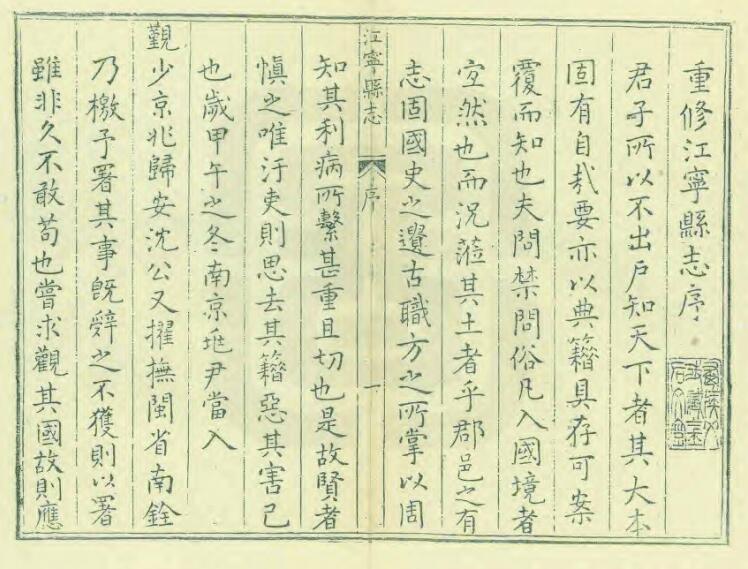 重修江寧縣志序
君子所以不出戶知天下者其大本
固有自哉要亦以典籍具存可案
覆而知也夫問禁問俗凡入國境者
宜然也而況蒞其土者乎郡邑之有
志固國史之遺古職方之所掌以周
江寧縣志
序
一
知其利病所繫甚重且切也是故賢者
慎之唯汙吏則思去其籍惡其害己
也歲甲午之冬南京兆尹當入
覲少京兆歸安沈公又擢撫閩省南銓
乃檄予署其事既辭之不獲則以署
雖非久不敢苟也嘗求觀其國故則應